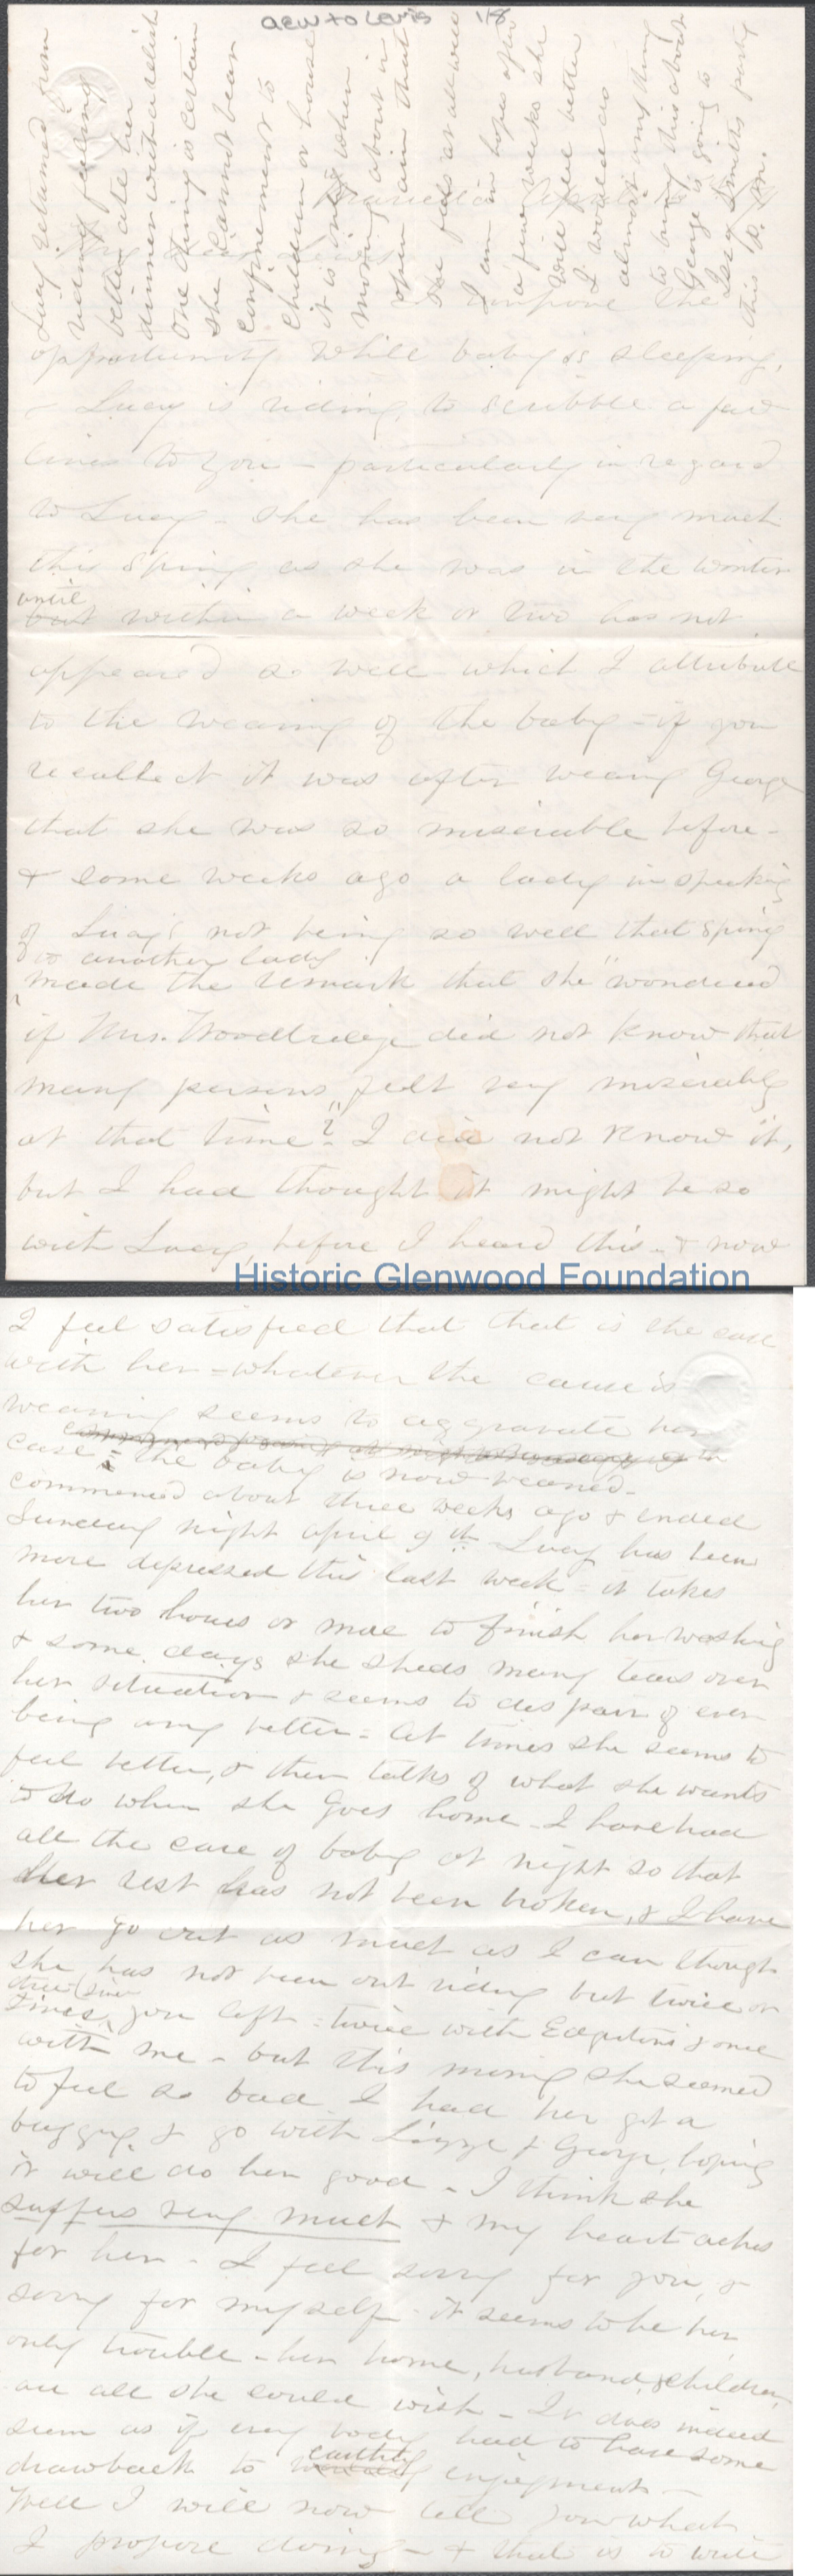 acw to Lewis 1/8
Lucy returned from
riding feeling
better ate her
dinner with a relish
One thing is certain
she cannot bear
confinement to
children or house
it is only when
moving about in
open air that
she feels at all well
I am in hopes after
a few weeks she
will feel better
I would do
almost anything
to bring this about
George is going to
Smiths party
this P.M.
Marietta April
My Dear Lewis
I improve the
opportunity while baby is sleeping,
& Lucy is riding, to scribble a few
lines to you - particularly in regard
to Lucy - She has been very much
this Spring as she was in the winter
until
but within a week or two has not
appeared so well which I attribute
to the weaning of the baby - if you
recollect it was after weaning George
that she was so miserable before -
& some weeks ago a lady in speaking
of Lucy's not being so well that Spring
to another lady
made the remark that she "wondered
if Mrs. Woodbridge did not know that
many persons felt very miserably
at that time"? I did not know it,
but I had thought it might be so
with Lucy, before I heard this - & now
Historic Glenwood Foundation
I feel satisfied that that is the case
with her - whatever the cause is
weaning seems to aggravate her
case - the baby is now weaned -
commenced about three weeks ago & ended
Sunday night April 9th - Lucy has been
more depressed this last week - it takes
her two hours or more to finish her washing
& some days she sheds many tears over
her situation & seems to despair of ever
being any better - At times she seems to
feel better, & then talks of what she wants
to do when she goes home - I have had
all the care of baby at night so that
her rest has not been broken, & I have
her go out as much as I can though
she has not been out riding but twice or
three since
times you left - twice with & once
with me - but this morning she seemed
to feel so bad I had her get a
buggy & go with Lizzie & George, hoping
it will do her good - I think she
suffers very much & my heart aches
for her - I feel sorry for you, &
sorry for myself - it seems to be her
only trouble - her home, husband, & children,
are all she could wish - It does indeed
seem as if every body had to have some
earthly
drawback to enjoyment -
Well I will now tell you what
I propose doing - & that is to write